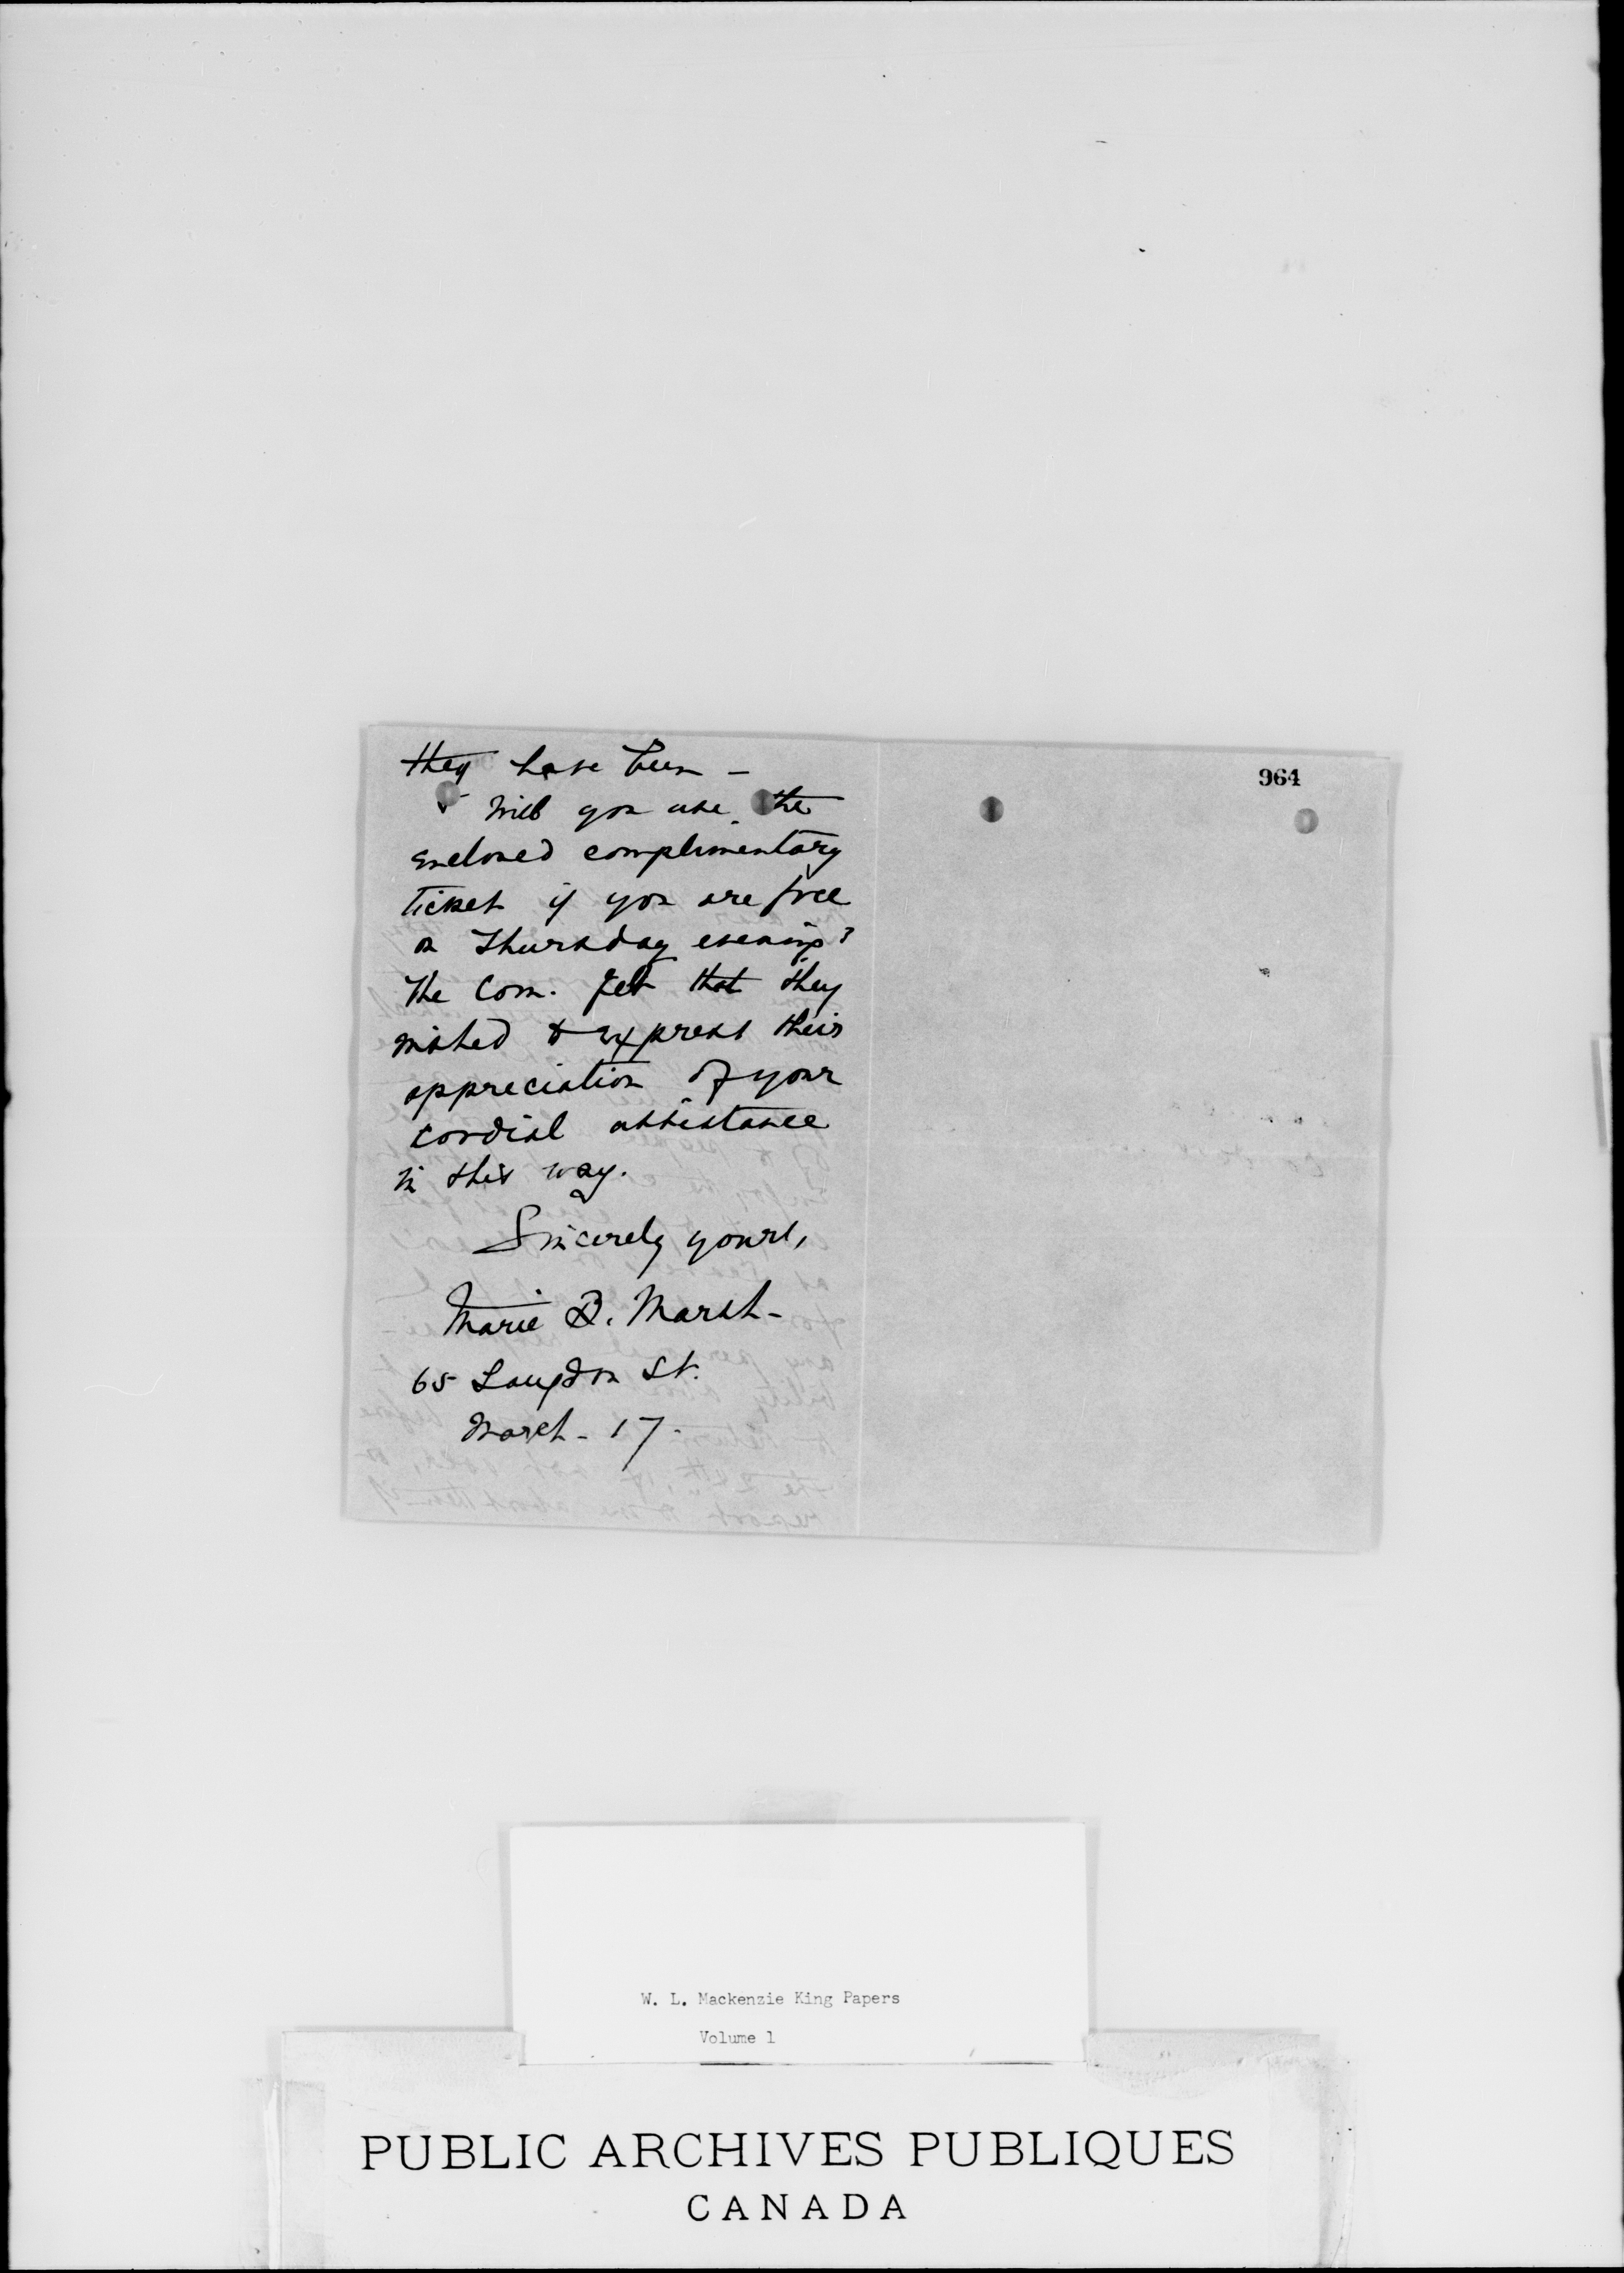 they have been –
Will you use the
enclosed complimentary
ticket if you are free
on Thursday evening?
The Com. felt that they
wished to express their
appreciation of your
cordial assistance
in this way.
Sincerely yours,
Marie B. Marsh –
65 Langdon St.
March – 17.
964
W. L. Mackenzie King Papers
Volume 1
PUBLIC ARCHIVES PUBLIQUES
CANADA